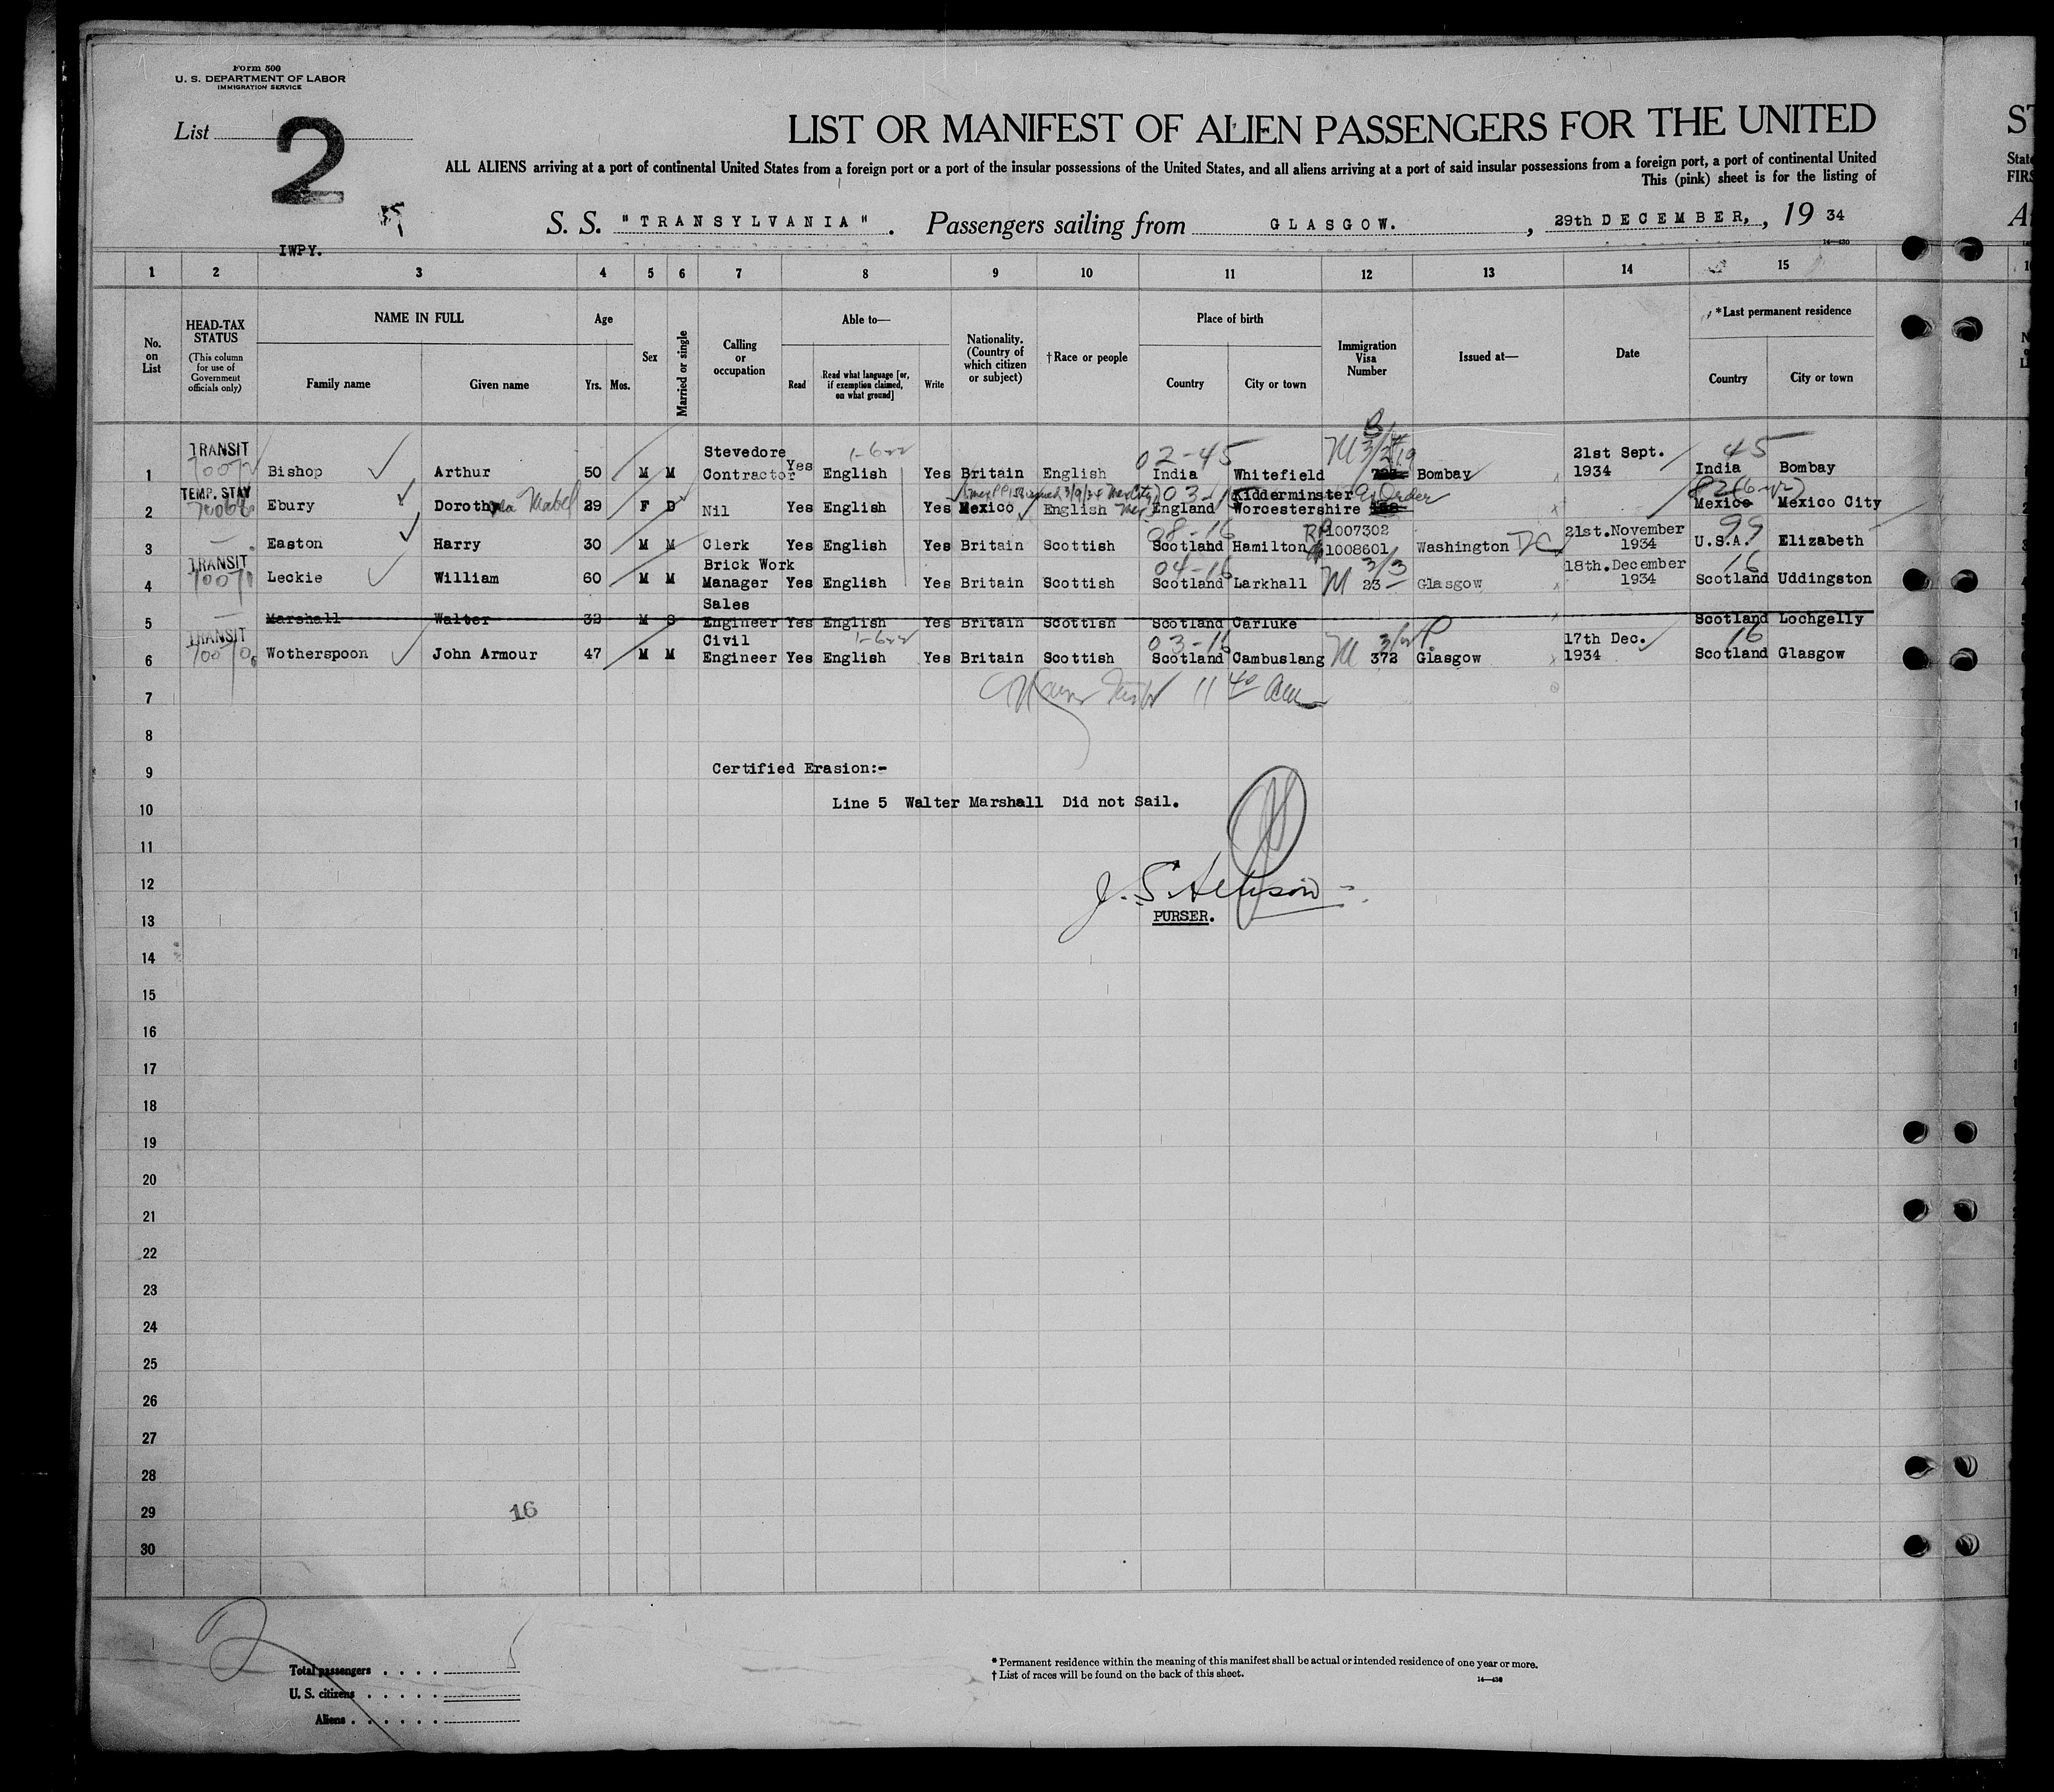 Form 500
U. S. DEPARTMENT OF LABOR
IMMIGRATION SERVICE
List 2
LIST OR MANIFEST OF ALIEN PASSENGERS FOR THE UNITED
ALL ALIENS arriving at a port of continental United States from a foreign port or a port of the insular possessions of the United States, and all aliens arriving at a port of said insular possessions from a foreign port, a port of continental United
This (pink) sheet is for the listing of
S. S. "TRANSYLVANIA". Passengers sailing from GLASGOW., 29th DECEMBER,, 19 34
IWPY.
14—430
1 2 3 4 5 6 7 8 9 10 11 12 13 14 15
No. on List
HEAD-TAX STATUS
(This column for use of Government officials only)
NAME IN FULL
Family name
Given name
Age
Yrs.
Mos.
Sex
Married or single
Calling or occupation
Able to—
Read
Read what language [or, if exemption claimed, on what ground]
Write
Nationality. (Country of which citizen or subject)
†Race or people
Place of birth
Country
City or town
Immigration Visa Number
Issued at—
Date
*Last permanent residence
Country
City or town
1 TRANSIT Bishop Arthur 50 M M Stevedore Contractor Yes English 1-6 Yes Britain English 02-45 India Whitefield Bombay 21st Sept. 1934 45 India Bombay
2 TEMP. STAY Ebury Dorothy Mabel 29 F D Nil Yes English Yes Mexico English 03-15 England Kidderminster Worcestershire Mexico Mexico City
3 Easton Harry 30 M M Clerk Yes English Yes Britain Scottish 08-16 Scotland Hamilton RP 1007302 1008601 Washington DC 21st.November 1934 99 U.S.A. Elizabeth
4 TRANSIT 70071 Leckie William 60 M M Brick Work Manager Yes English Yes Britain Scottish 04-16 Scotland Larkhall 3/3 23 Glasgow 18th.December 1934 16 Scotland Uddingston
5 Marshall Walter 32 M S Sales Engineer Yes English Yes Britain Scottish Scotland Carluke Scotland Lochgelly
6 TRANSIT 70070 Wotherspoon John Armour 47 M M Civil Engineer Yes English Yes Britain Scottish 03-16 Scotland Cambuslang 372 Glasgow 17th Dec. 1934 16 Scotland Glasgow
7
11 40 am
8
9 Certified Erasion:-
10 Line 5 Walter Marshall Did not Sail.
11
12
PURSER.
13
14
15
16
17
18
19
20
21
22
23
24
25
26
27
28
29
16
30
2
Total passengers . . . . 5
U. S. citizens . . . . .
Aliens . . . . . .
* Permanent residence within the meaning of this manifest shall be actual or intended residence of one year or more.
† List of races will be found on the back of this sheet.
14—430